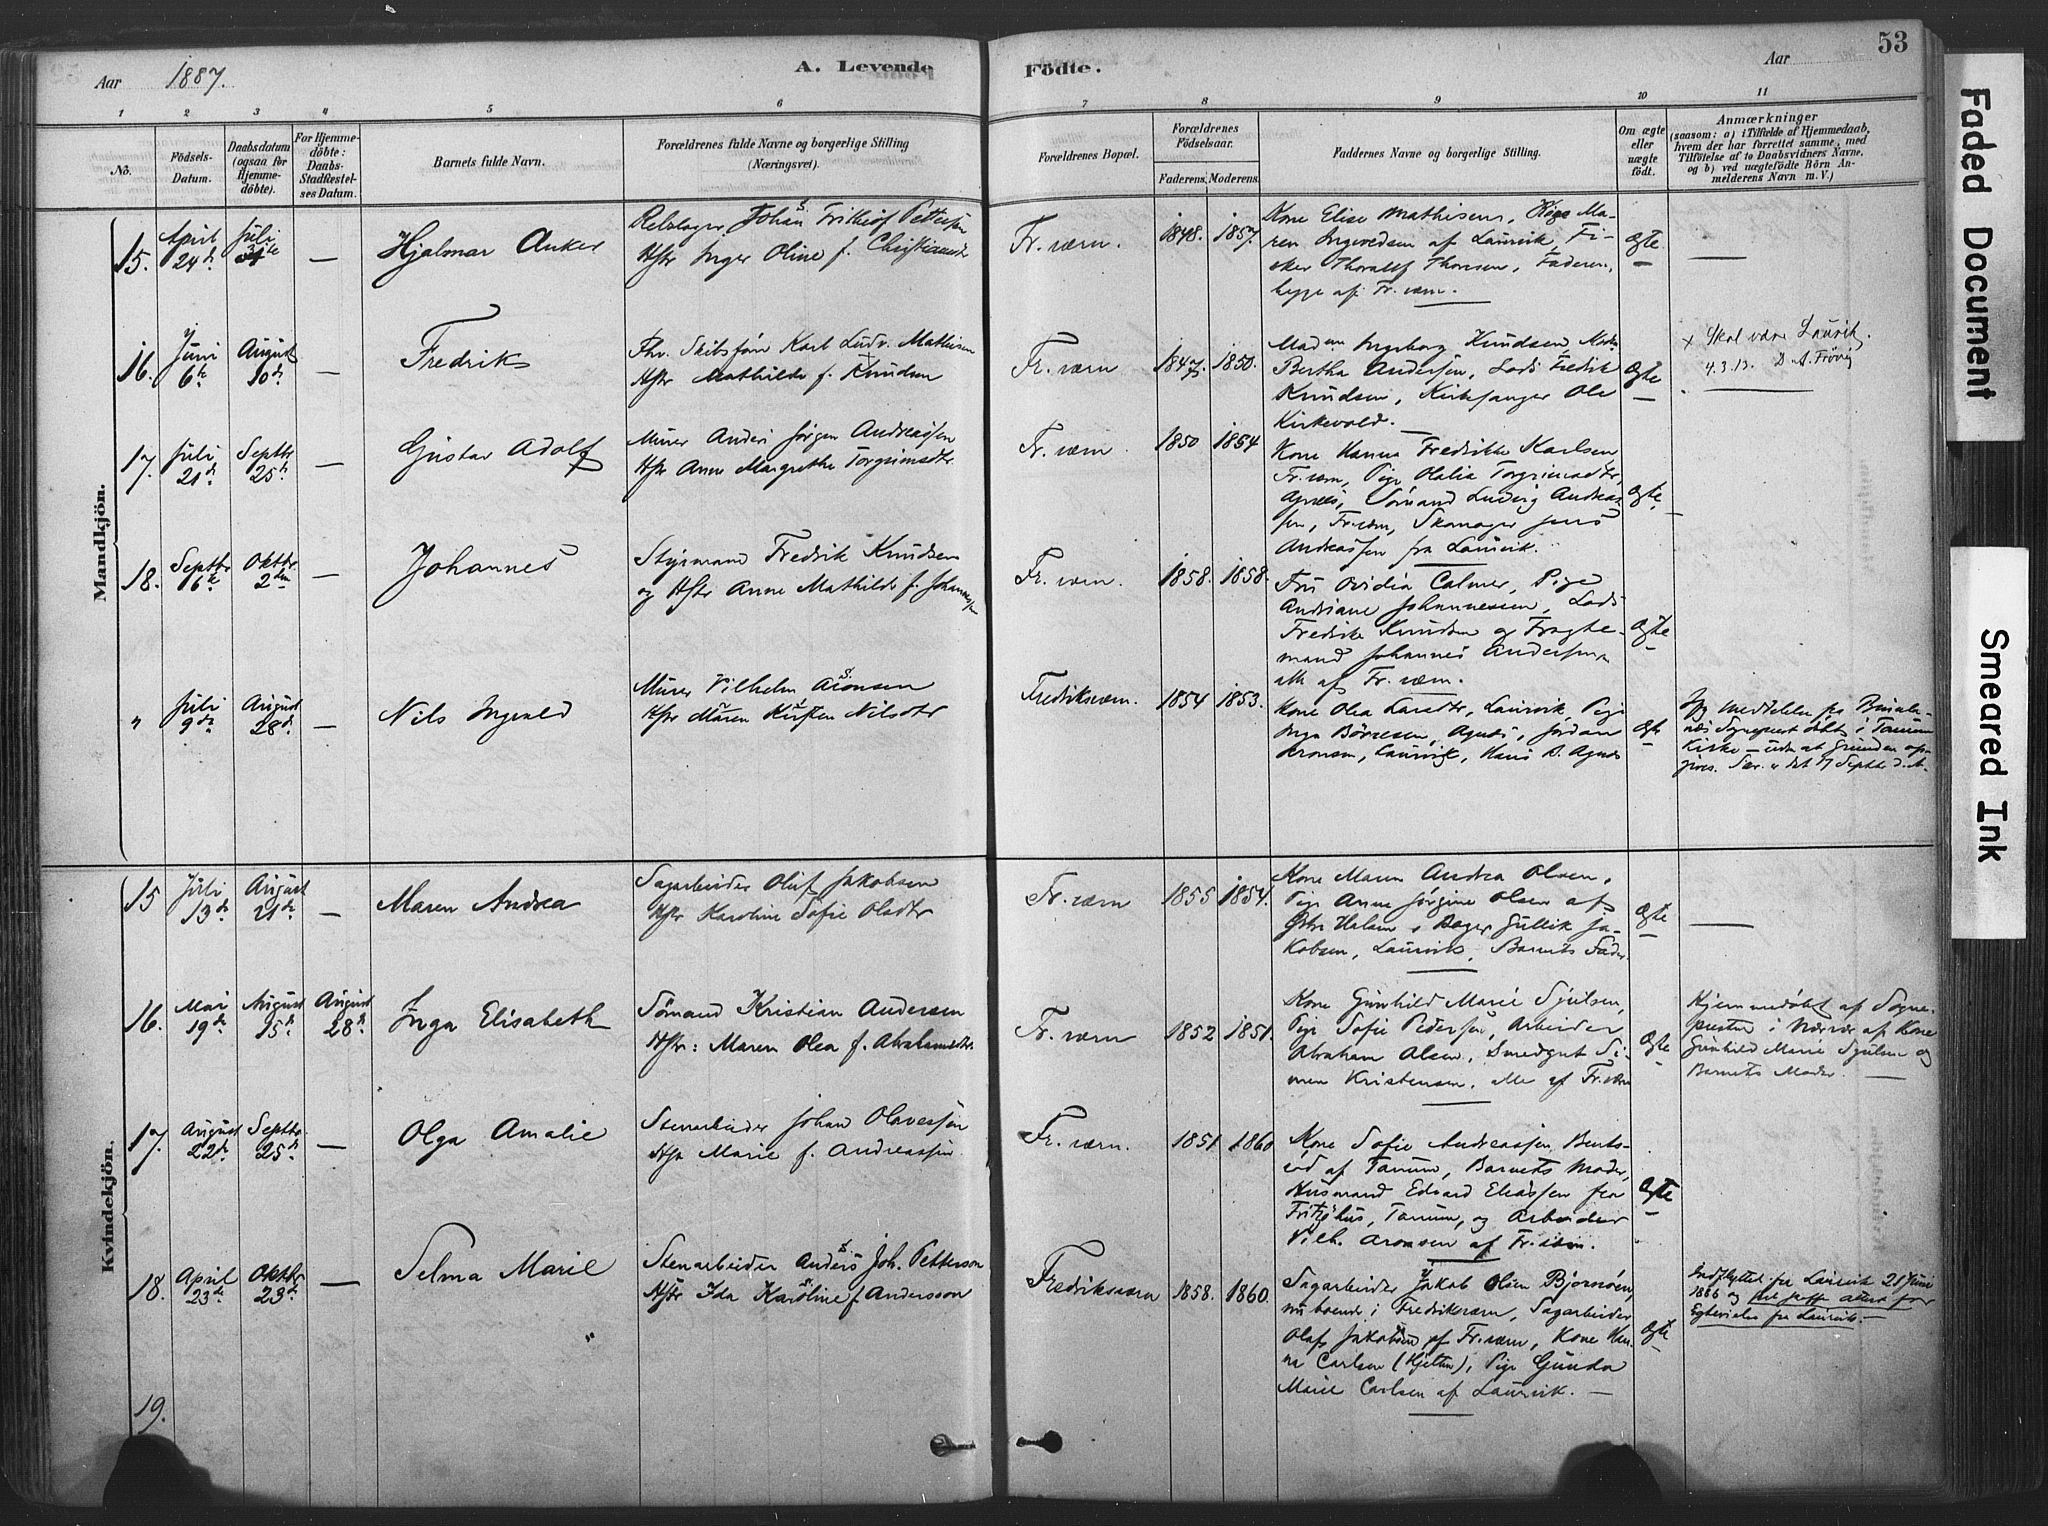 53
Aar 1887.
A. Levende Födte.
Aar
1 2 3 4 5 6 7 8 9 10 11
No.
Födsels-
Datum.
Daabsdatum
(ogsaa for
Hjemme-
döbte).
For Hjemme-
döbte:
Daabs-
Stadfæstel-
ses Datum.
Barnets fulde Navn.
Forældrenes fulde Navne og borgerlige Stilling
(Næringsvei).
Forældrenes Bopæl.
Forældrenes
Födselsaar.
Faderens. Moderens.
Faddernes Navne og borgerlige Stilling.
Om ægte
eller
uægte
født.
Anmærkninger
(saasom: a) i Tilfælde af Hjemmedaab,
hvem der har forrettet samme, med
Tilföielse af to Daabsvidners Navne,
og b) ved uægtefödte Börn An-
melderens Navn m. V.)
Mandkjön.
15. April 24d Juli — Hjalmar Anker
Johan Frithiof Pettersen
Hstr Inger Oline f.
Fr. værn. 1848. 1857.
Kone Elise Mathisen, Ma-
ren af Laurvik, Fi-
sker Thoralf Thorsen, Faderen,
begge af Fr. værn.
Ægte —
16. Juni 6te August 10de — Fredrik
Skibstøm Karl Ludv. Mathisen
Hstr Mathilde f. Knudsen
Fr. værn 1847. 1850.
Madm Ingeborg Knudsen
Bertha Andersen, Lods Fredrik
Knudsen, Kirkesanger Ole
Kirkevold.
Ægte
x Skal være Laurvik.
4.3.13.
17. Juli 21d Septbr 25d — Gustav Adolf
Murer Anders Jörgen Andreassen
Hstr Anne Margrethe Torgrimsdtr.
Fr. værn. 1850 1854
Kone Hanna Fredrikke Karlsen
Fr. værn, Pige Olalia Torgrimsdtr,
Agnes, Sømand Ludvig Andreas-
sen, Fr. værn, Skomager Jens
Andreassen fra Laurvik.
Ægte
18. Septbr 16de Oktbr 2den — Johannes
Styrmand Fredrik Knudsen
og Hstr Anne Mathilde f. Johannessen
Fr. værn. 1858. 1858.
Fru Ovidia Calmer, Pige
Andriane Johannessen, Lods
Fredrik Knudsen og Fragte-
mand Johannes Andersen
alle af Fr. værn.
Ægte
" Juli 9de August 28d — Nils Ingvald
Murer Vilhelm Aronsen
Hstr Maren Kirsten Nilsdtr
Fredriksværn. 1854 1853.
Kone Olea Larsdtr, Laurvik Pige
Inga Börresen, Agnes, Jordan
Aronsen, Laurvig, Hans B. Agnes
Ægte
Kirke — uden at Grunden op-
gives.
Kvindekjön.
15 Juli 13de August 21de — Maren Andrea
Sagarbeider Oluf Jakobsen
Hstr Karoline Sofie Olsdtr
Fr. værn 1855 1854.
Kone Maren Andrea Olsen,
Pige Anne Jørgine Olsen af
Østre Halsen, Bager Gullik Ja-
kobsen, Laurvik, Barnets Fader
Ægte —
16. Mai 19de August 15de August 28d Inga Elisabeth
Sömand Kristian Andersen
Hstr: Maren Olea f. Abrahamsdtr.
Fr. værn 1852 1851.
Kone Gunhild Marie Sjulsen,
Pige Sofie Pedersen, Arbeider
Abraham Olsen, Smedgut Si-
men Kristensen, alle af Fr. værn
Ægte
Hjemmedøbt af Sogne-
presten i Nærvær af Kone
Gunhild Marie Sjulsen og
Barnets Moder. —
17. August 22de Septbr. 25de — Olga Amalie
Stenarbeider Johan Olavessen
Hstr Marie f. Andreassen.
Fr. værn. 1851 1860
Kone Sofie Andreassen Bents-
rød af Tanum, Barnets Moder,
Husmand Edvard Eliassen fra
Fritzøhus, Tanum, og Arbeider
Vilh. Aronsen af Fr. værn.
Ægte
18. April 23de Oktbr 23de — Selma Marie
Stenarbeider Anders Joh. Petterson
Hstr Ida Karoline f. Andersson
Fredriksværn 1858. 1860.
Sagarbeider Jakob Olsen Bjornöen,
nu boende i Fredriksværn, Sagarbeider
Olaf Jakobsen af Fr. værn, Kone Han-
na Carlsen (Hjelten), Pige Gunda
Marie Carlsen af Laurvik. —
Ægte
Indflyttet fra Laurvik 21 Juni
1886 og
fra Laurvik. —
19.
Faded Document
Smeared Ink